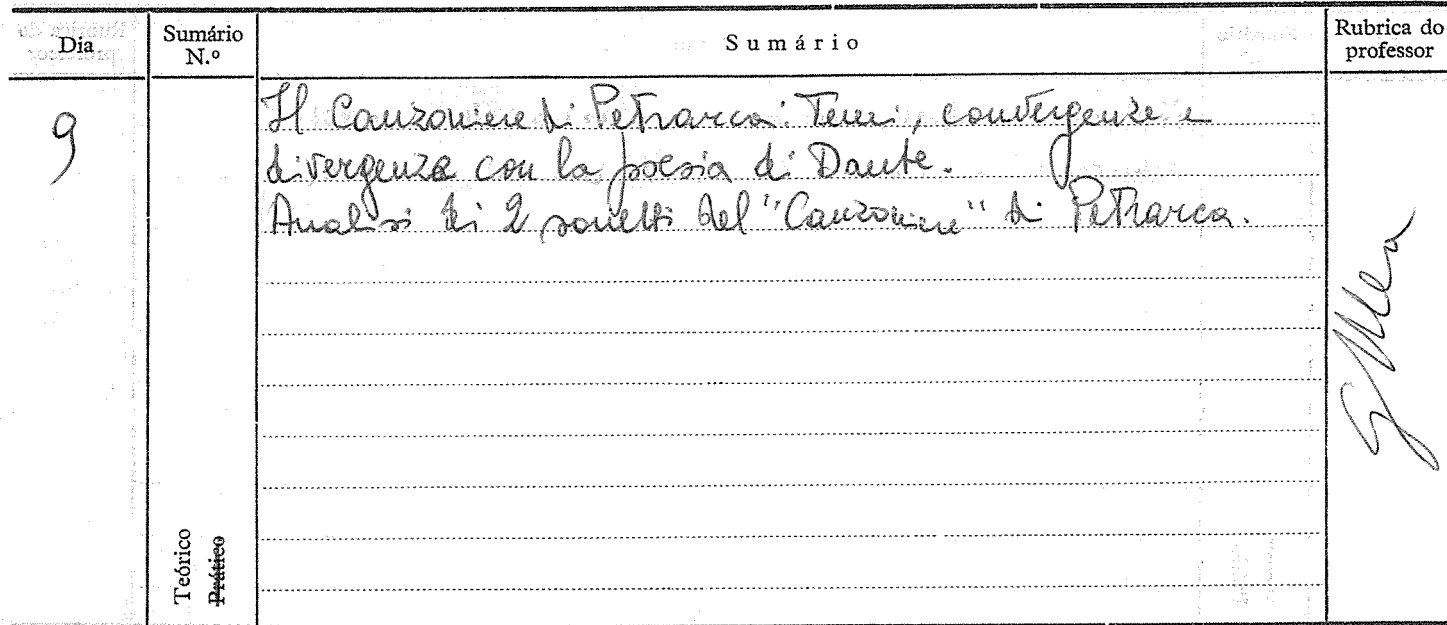 Dia
Sumário N.º
Sumário
Rubrica do professor
9
Il Canzoniere di Petrarca: Temi, convergenze e
divergenze con la poesia di Dante.
Analisi di 2 sonetti del "Canzoniere" di Petrarca.
Teórico
Prático